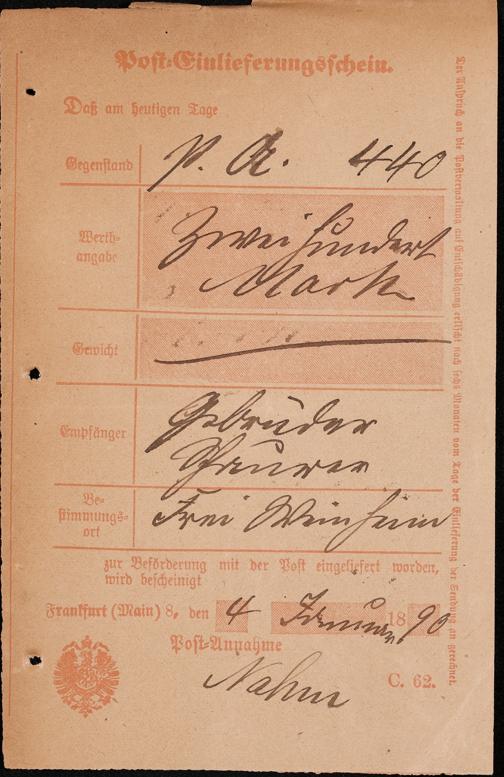 Post-Einlieferungsschein.
Daß am heutigen Tage
Gegenstand P. A. 440
Werth-
angabe
Zwei hundert
Mark
Gewicht
Empfänger
Gebrüder
Be-
stimmungs-
ort
Frei Weinheim
zur Beförderung mit der Post eingeliefert worden,
wird bescheinigt
Frankfurt (Main) 8, den 4 Januar 1890
Post-Annahme
C. 62.
Der Anspruch an die Postverwaltung auf Entschädigung erlischt nach sechs Monaten vom Tage der Einlieferung der Sendung an gerechnet.